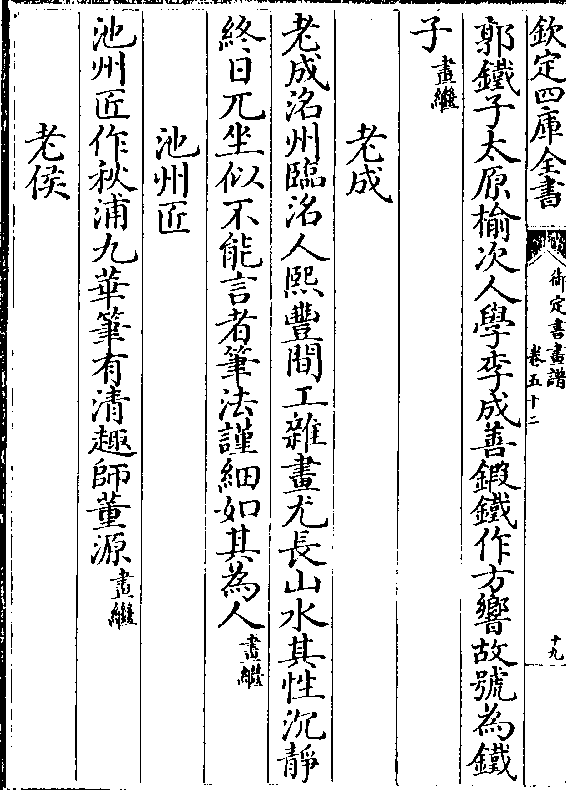 欽定四庫全書
御定書畫譜
卷五十二
十九
郭鐵子太原榆次人學李成善鍛鐵作方響故號為鐵
子畫繼
老成
老成洺州臨洺人熙豐間工雜畫尤長山水其性沉靜
終日兀坐似不能言者筆法謹細如其為人畫繼
池州匠
池州匠作秋浦九華筆有清趣師董源畫繼
老侯